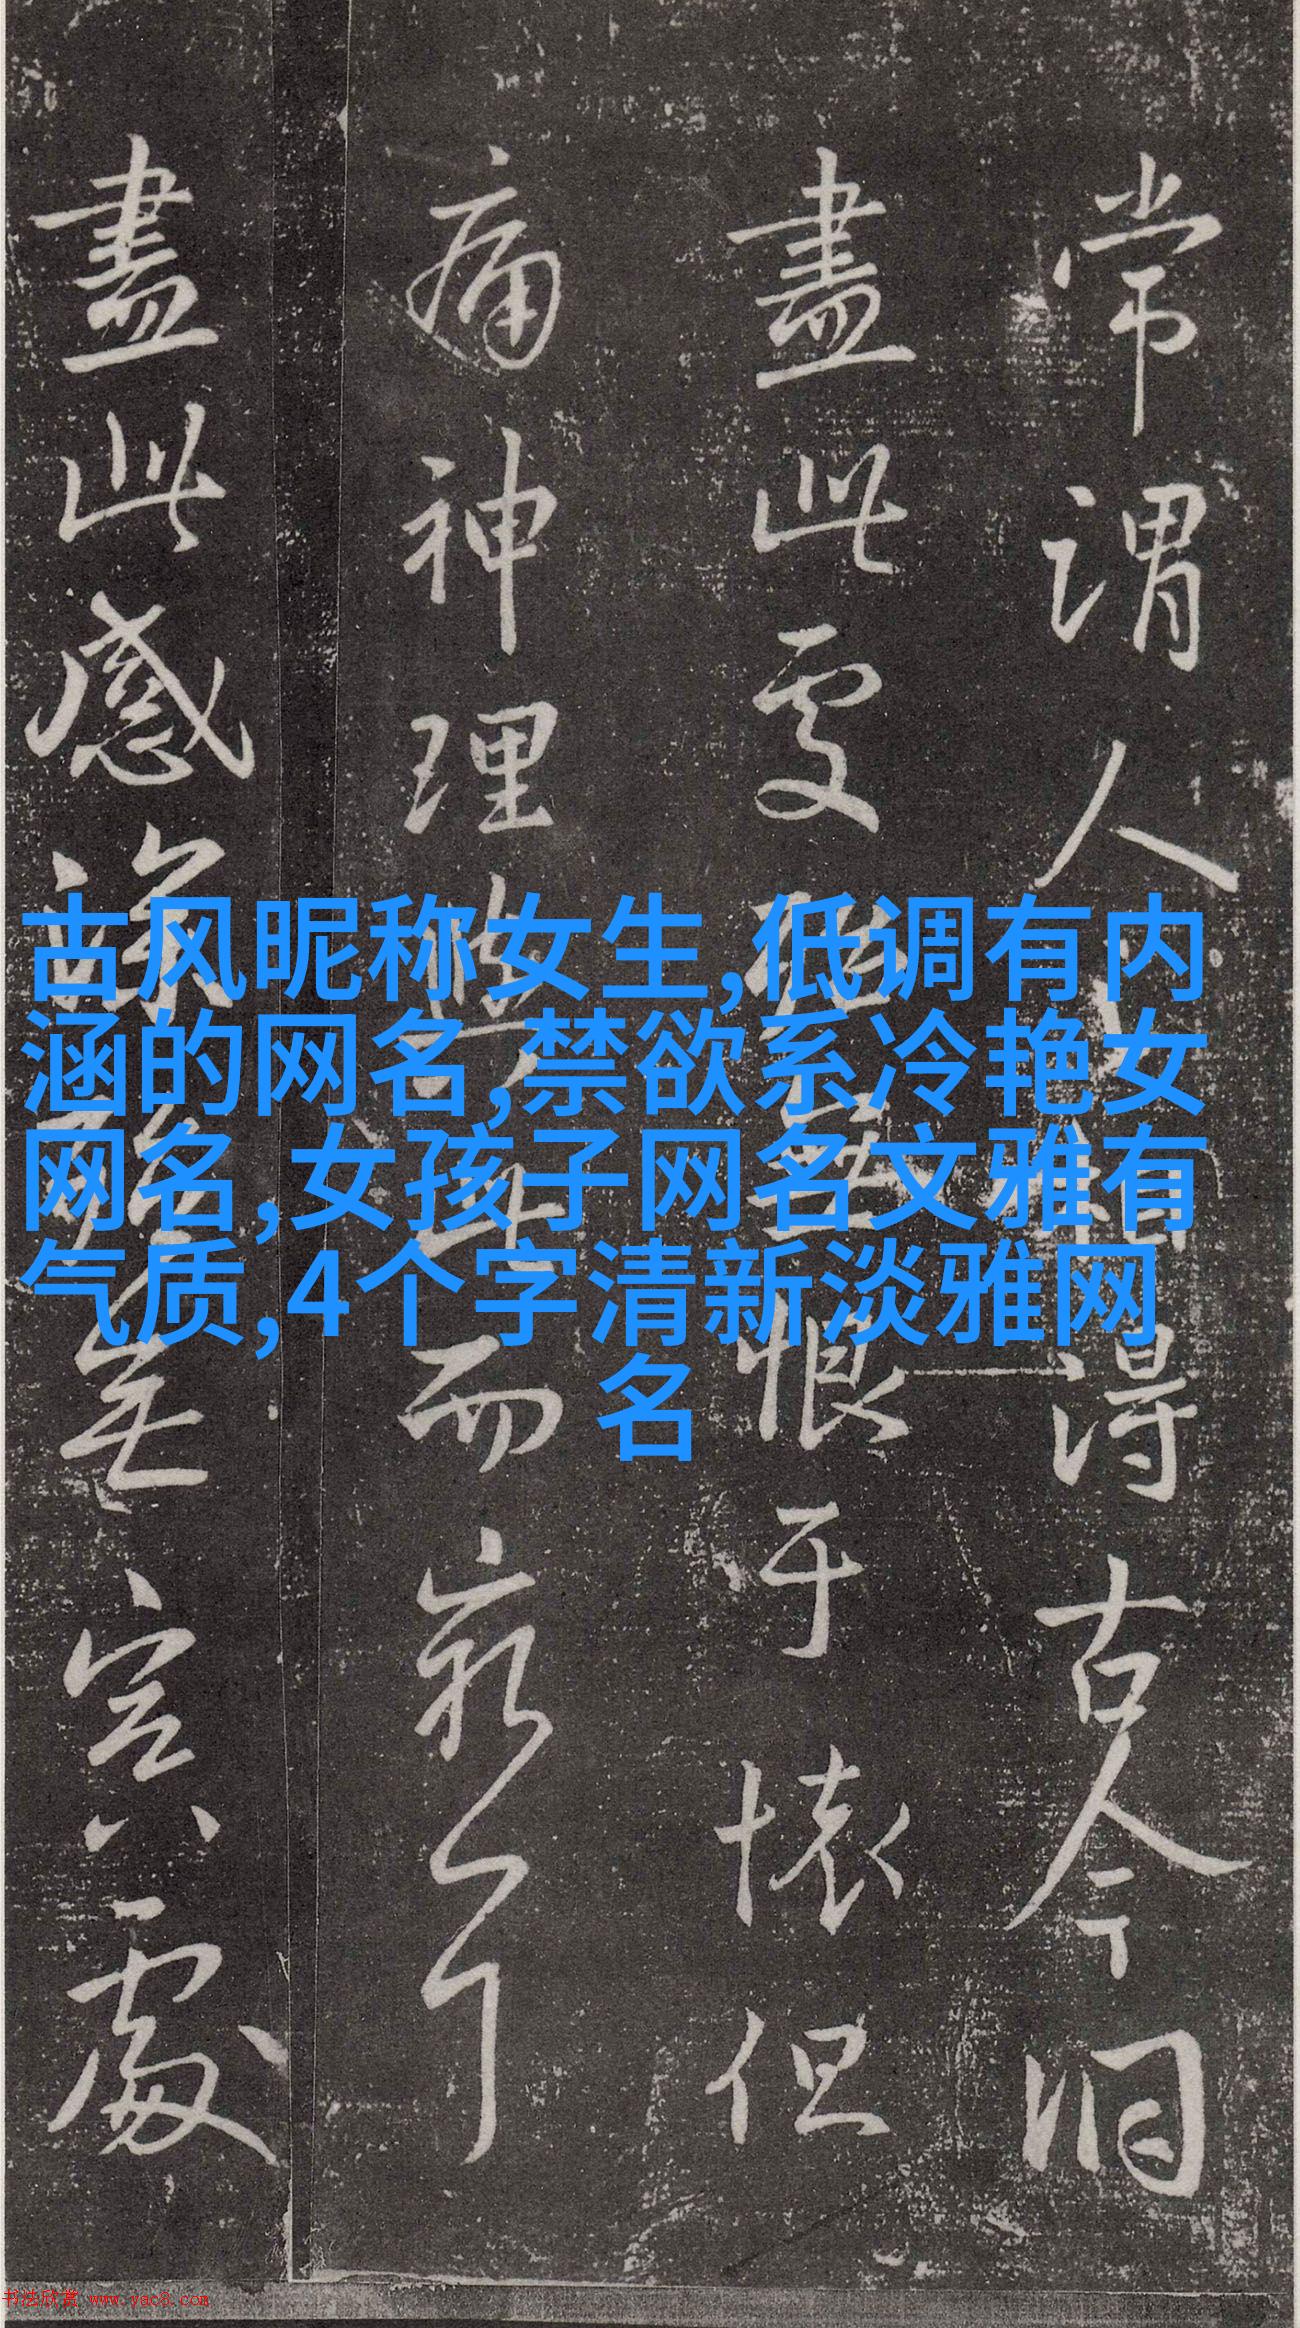 古风昵称女生,低调有内
涵的网名,禁欲系冷艳女
网名,女孩子网名文雅有
气质,4个字清新淡雅网
名
常謂人得古今洞
盡此處恨于懷但
痛神理而
盡此感處
书法欣赏 www.yac8.com